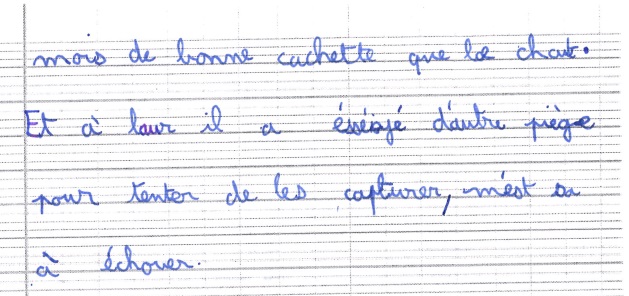 mois de bonne cachette que le chat.
Et à laur il a ésséjé d'autre piège
pour tenter de les capturer, m'est sa
à échouer.